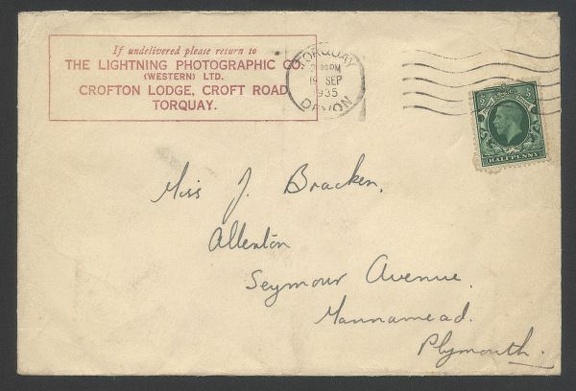 If undelivered please return to
THE LIGHTNING PHOTOGRAPHIC CO.
(WESTERN) LTD.
CROFTON LODGE, CROFT ROAD
TORQUAY.
TORQUAY
PM
19 SEP
1935
DEVON
HALFPENNY
Miss J. Bracken.
Allenton
Seymour Avenue.
Mannamead.
Plymouth.